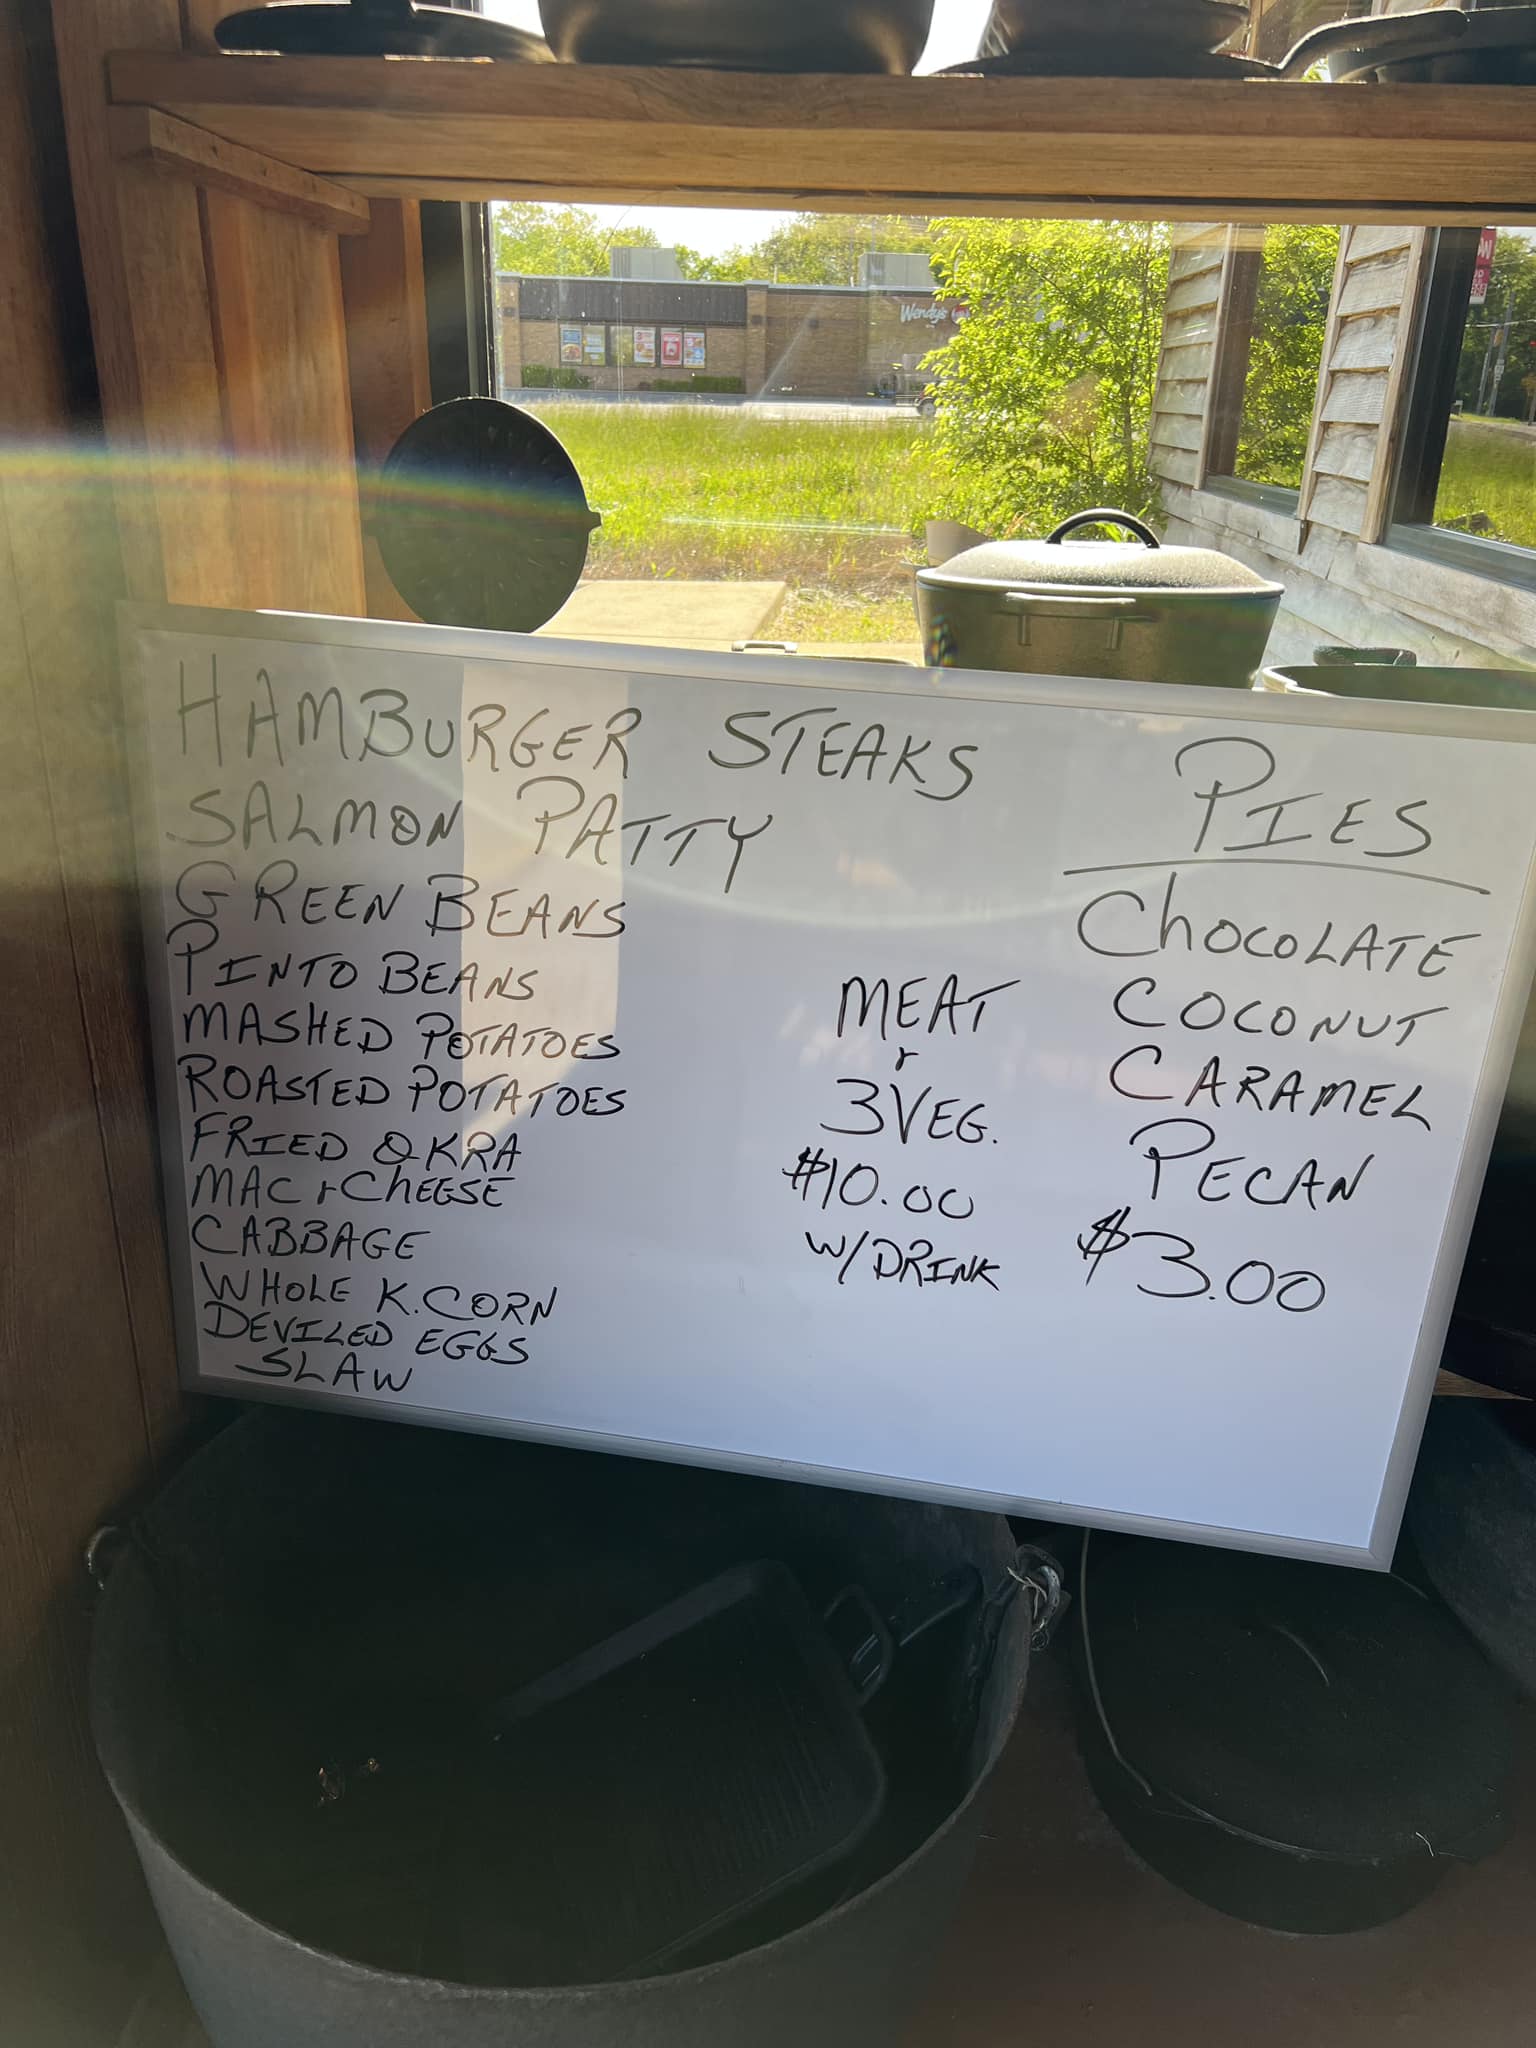 Wendy's
HAMBURGER STEAKS
SALMON PATTY
GREEN BEANS
PINTO BEANS
MASHED POTATOES
ROASTED POTATOES
FRIED OKRA
MAC & CHEESE
CABBAGE
WHOLE K. CORN
DEVILED EGGS
SLAW
MEAT
&
3 VEG.
$10.00
W/DRINK
PIES
CHOCOLATE
COCONUT
CARAMEL
PECAN
$3.00